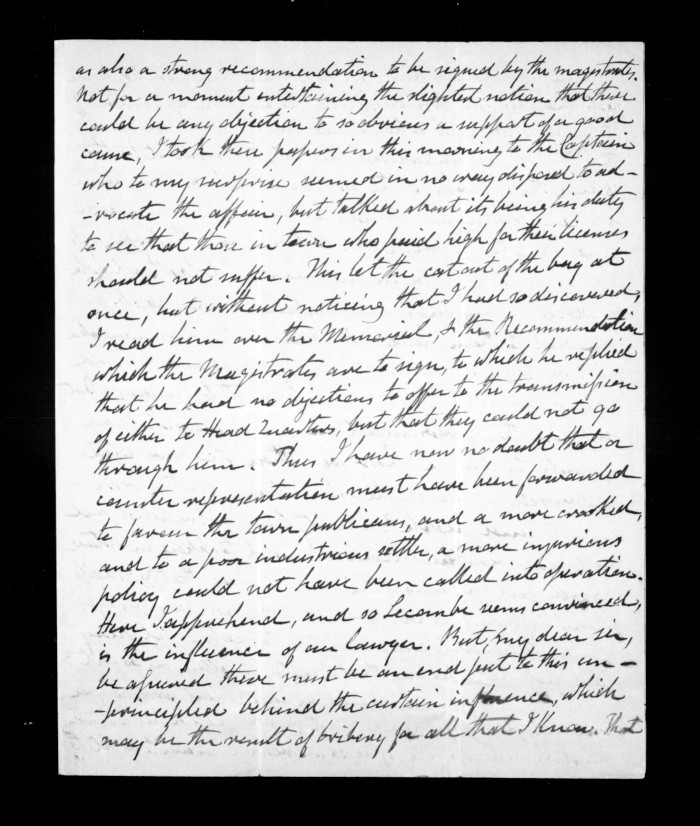 as also a strong recommendation to be signed by the magistrates.
Not for a moment entertaining the slightest notion that there
could be any objection to so obvious a support of a good
cause, I took these papers in this morning to the Captain
who to my surprise seemed in no way disposed to ad-
-vocate the affair, but talked about its being his duty
to see that those in town who paid high for their licenses
should not suffer. This let the cat out of the bag at
once, but without noticing that I had so discovered,
I read him over the Memorial, & the Recommendation
which the Magistrates are to sign, to which he replied
that he had no objections to offer to the transmission
of either to Head Quarters, but that they could not go
through him. Thus I have now no doubt that a
counter representation must have been forwarded
to favour the town publicans, and a more crooked,
and to a poor industrious settler, a more injurious
policy could not have been called into operation.
Here I apprehend, and so Secombe seems convinced,
is the influence of our lawyer. But, my dear sir,
be assured there must be an end put to this un-
-principled behind the curtain influence, which
may be the result of bribery for all that I know. That